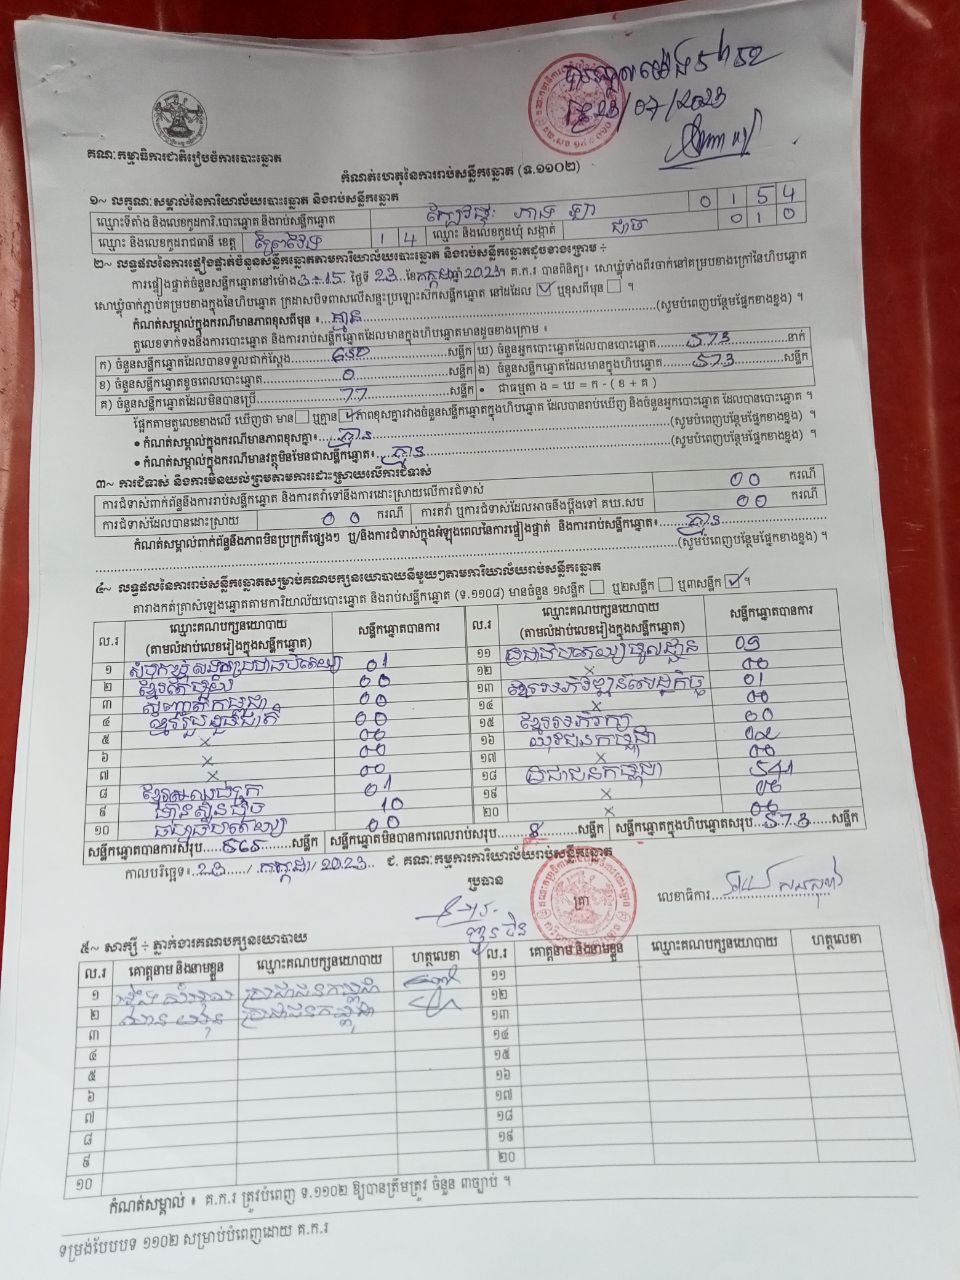 ២៣/07/2023
គណៈកម្មាធិការជាតិរៀបចំការបោះឆ្នោត
កំណត់ហេតុនៃការរាប់សន្លឹកឆ្នោត (ទ.១១០២)
១~ លក្ខណៈសម្គាល់នៃការិយាល័យបោះឆ្នោត និងរាប់សន្លឹកឆ្នោត
ឈ្មោះទីតាំង និងលេខកូដការិ.បោះឆ្នោត និងរាប់សន្លឹកឆ្នោត 0 1 5 4
ឈ្មោះ និងលេខកូដរាជធានី ខេត្ត ព្រៃវែង 1 4 ឈ្មោះ និងលេខកូដឃុំ សង្កាត់ 0 1 0
២~ លទ្ធផលនៃការផ្ទៀងផ្ទាត់ចំនួនសន្លឹកឆ្នោតតាមការិយាល័យបោះឆ្នោត និងរាប់សន្លឹកឆ្នោតដូចខាងក្រោម ÷
ការផ្ទៀងផ្ទាត់ចំនួនសន្លឹកឆ្នោតនៅម៉ោង 3:15 ថ្ងៃទី 23 ខែ កក្កដា ឆ្នាំ 2023។ គ.ក.រ បានពិនិត្យ៖ សោឃ្លុំទាំងពីរចាក់នៅគម្របខាងក្រៅនៃហិបឆ្នោត
សោឃ្លុំចាក់ភ្ជាប់គម្របខាងក្នុងនៃហិបឆ្នោត ក្រដាសបិទពាសលើសន្ទះប្រឡោះស៊កសន្លឹកឆ្នោត នៅដដែល ☑ ឬខុសពីមុន ☐ ។
កំណត់សម្គាល់ក្នុងករណីមានភាពខុសពីមុន ៖ គ្មាន (សូមបំពេញបន្ថែមផ្នែកខាងខ្នង) ។
តួលេខទាក់ទងនឹងការបោះឆ្នោត និងការរាប់សន្លឹកឆ្នោតដែលមានក្នុងហិបឆ្នោតមានដូចខាងក្រោម ៖
ក) ចំនួនសន្លឹកឆ្នោតដែលបានទទួលជាក់ស្តែង 650 សន្លឹក ឃ) ចំនួនអ្នកបោះឆ្នោតដែលបានបោះឆ្នោត 573 នាក់
ខ) ចំនួនសន្លឹកឆ្នោតខូចពេលបោះឆ្នោត 0 សន្លឹក ង) ចំនួនសន្លឹកឆ្នោតដែលមានក្នុងហិបឆ្នោត 573 សន្លឹក
គ) ចំនួនសន្លឹកឆ្នោតដែលមិនបានប្រើ 77 សន្លឹក • ជាធម្មតា ង = ឃ = ក - ( ខ + គ )
ផ្អែកតាមតួលេខខាងលើ ឃើញថា មាន ☐ ឬគ្មាន ☑ ភាពខុសគ្នារវាងចំនួនសន្លឹកឆ្នោតក្នុងហិបឆ្នោត ដែលបានរាប់ឃើញ និងចំនួនអ្នកបោះឆ្នោត ដែលបានបោះឆ្នោត ។
• កំណត់សម្គាល់ក្នុងករណីមានភាពខុសគ្នា៖ គ្មាន (សូមបំពេញបន្ថែមផ្នែកខាងខ្នង) ។
• កំណត់សម្គាល់ក្នុងករណីមានវត្ថុមិនមែនជាសន្លឹកឆ្នោត៖ គ្មាន (សូមបំពេញបន្ថែមផ្នែកខាងខ្នង) ។
៣~ ការជំទាស់ និងការមិនយល់ព្រមតាមការដោះស្រាយលើការជំទាស់
ការជំទាស់ពាក់ព័ន្ធនឹងការរាប់សន្លឹកឆ្នោត និងការតវ៉ាទៅនឹងការដោះស្រាយលើការជំទាស់ 00 ករណី
ការជំទាស់ដែលបានដោះស្រាយ 00 ករណី ការតវ៉ា ឬការជំទាស់ដែលអាចនឹងប្តឹងទៅ គឃ.សប 00 ករណី
កំណត់សម្គាល់ពាក់ព័ន្ធនឹងភាពមិនប្រក្រតីផ្សេងៗ ឬ/និងការជំទាស់ក្នុងអំឡុងពេលនៃការផ្ទៀងផ្ទាត់ និងការរាប់សន្លឹកឆ្នោត៖ គ្មាន
(សូមបំពេញបន្ថែមផ្នែកខាងខ្នង) ។
៤~ លទ្ធផលនៃការរាប់សន្លឹកឆ្នោតសម្រាប់គណបក្សនយោបាយនីមួយៗតាមការិយាល័យរាប់សន្លឹកឆ្នោត
តារាងកត់ត្រាសំឡេងឆ្នោតតាមការិយាល័យបោះឆ្នោត និងរាប់សន្លឹកឆ្នោត (ទ.១១០៨) មានចំនួន ១សន្លឹក ☐ ឬ២សន្លឹក ☐ ឬ៣សន្លឹក ☑ ។
ល.រ ឈ្មោះគណបក្សនយោបាយ (តាមលំដាប់លេខរៀងក្នុងសន្លឹកឆ្នោត) សន្លឹកឆ្នោតបានការ ល.រ ឈ្មោះគណបក្សនយោបាយ (តាមលំដាប់លេខរៀងក្នុងសន្លឹកឆ្នោត) សន្លឹកឆ្នោតបានការ
១ សំបុកឃ្មុំសង្គមប្រជាធិបតេយ្យ 01 ១១ ប្រជាធិបតេយ្យមូលដ្ឋាន 09
២ ខ្មែរតែមួយ 00 ១២ × 00
៣ សញ្ជាតិកម្ពុជា 00 ១៣ ខ្មែរអភិវឌ្ឍន៍សេដ្ឋកិច្ច 01
៤ ខ្មែររួបរួមជាតិ 00 ១៤ × 00
៥ × 00 ១៥ ខ្មែរអភិរក្ស 00
៦ × 00 ១៦ យុវជនកម្ពុជា 02
៧ × 00 ១៧ × 00
៨ 01 ១៨ ប្រជាជនកម្ពុជា 541
៩ ហ៊្វុនស៊ិនប៉ិច 10 ១៩ × 00
១០ ធម្មាធិបតេយ្យ 00 ២០ × 00
សន្លឹកឆ្នោតបានការសរុប 565 សន្លឹក សន្លឹកឆ្នោតមិនបានការពេលរាប់សរុប 8 សន្លឹក សន្លឹកឆ្នោតក្នុងហិបឆ្នោតសរុប 573 សន្លឹក
កាលបរិច្ឆេទ៖ 23 / កក្កដា / 2023 ជ. គណៈកម្មការការិយាល័យរាប់សន្លឹកឆ្នោត
ប្រធាន ត្រា លេខាធិការ
៥~ សាក្សី ÷ ភ្នាក់ងារគណបក្សនយោបាយ
ល.រ គោត្តនាម និងនាមខ្លួន ឈ្មោះគណបក្សនយោបាយ ហត្ថលេខា ល.រ គោត្តនាម និងនាមខ្លួន ឈ្មោះគណបក្សនយោបាយ ហត្ថលេខា
១ ប្រជាជនកម្ពុជា ១១
២ ប្រជាជនកម្ពុជា ១២
៣ ១៣
៤ ១៤
៥ ១៥
៦ ១៦
៧ ១៧
៨ ១៨
៩ ១៩
១០ ២០
កំណត់សម្គាល់ ៖ គ.ក.រ ត្រូវបំពេញ ទ.១១០២ ឱ្យបានត្រឹមត្រូវ ចំនួន ៣ច្បាប់ ។
ទម្រង់បែបបទ ១១០២ សម្រាប់បំពេញដោយ គ.ក.រ